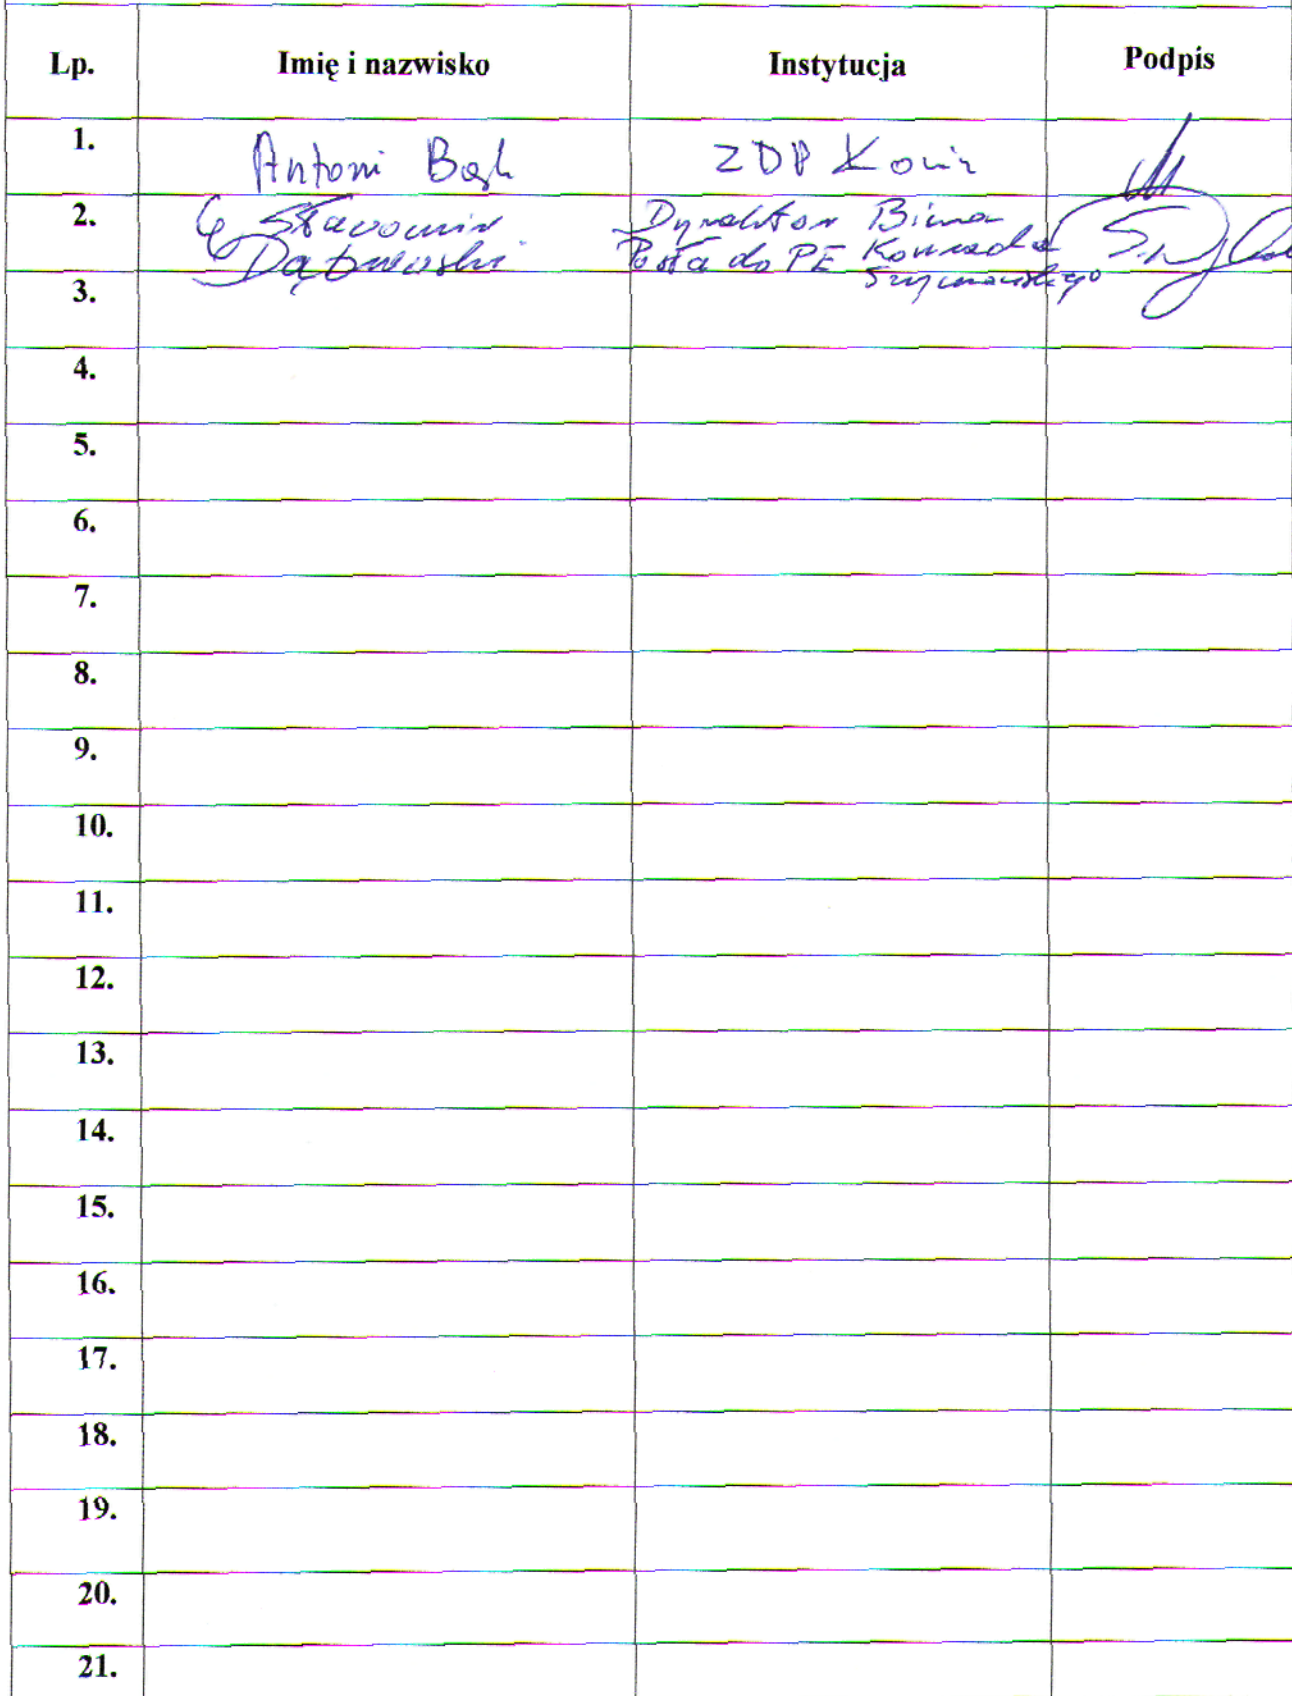 Lp. Imię i nazwisko Instytucja Podpis
1. Antoni Bąk ZDP Konin
2. Sławomir Dyrektor Biura
Dąbrowski Posła do PE Konrada
3. Szymańskiego
4.
5.
6.
7.
8.
9.
10.
11.
12.
13.
14.
15.
16.
17.
18.
19.
20.
21.